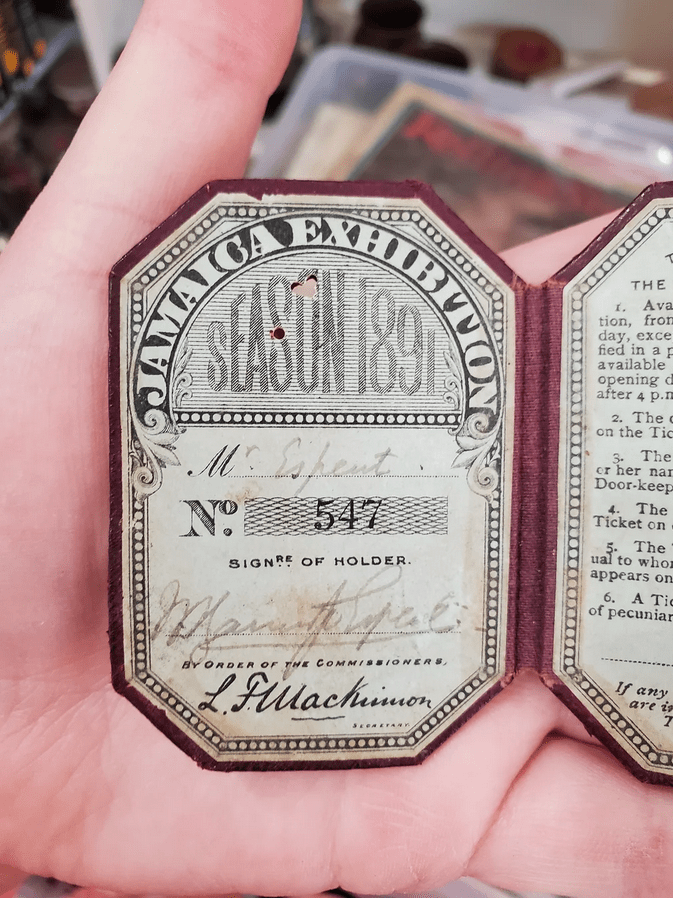 JAMAICA EXHIBITION
SEASON 1891
Mr. Espeut.
No. 547
SIGNRE OF HOLDER.
Espeut
BY ORDER OF THE COMMISSIONERS,
L. F. Mackinnon
SECRETARY.
THE
1. Ava
tion, from
day, exce
fied in a p
available
opening d
after 4 p.m
2. The
on the Tic
3. The
or her nam
Door-keep
4. The
Ticket on
5. The
ual to whom
appears on
6. A Tic
of pecuniar
If any
are in
T